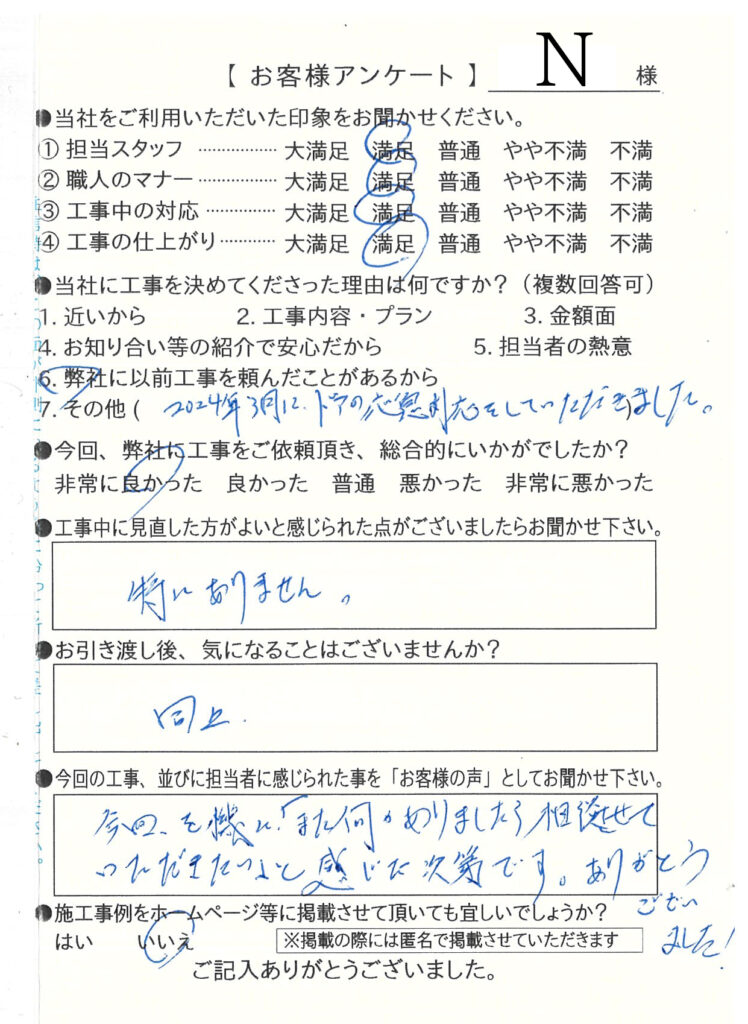 【 お客様アンケート 】 N 様
●当社をご利用いただいた印象をお聞かせください。
① 担当スタッフ ⋯⋯⋯⋯⋯ 大満足 満足 普通 やや不満 不満
② 職人のマナー ⋯⋯⋯⋯⋯ 大満足 満足 普通 やや不満 不満
③ 工事中の対応 ⋯⋯⋯⋯ 大満足 満足 普通 やや不満 不満
④ 工事の仕上がり⋯⋯⋯⋯ 大満足 満足 普通 やや不満 不満
●当社に工事を決めてくださった理由は何ですか?(複数回答可)
1. 近いから 2. 工事内容・プラン 3. 金額面
4. お知り合い等の紹介で安心だから 5. 担当者の熱意
6. 弊社に以前工事を頼んだことがあるから
7. その他 ( 2024年3月に、ドアの応急対応をしていただきました。
●今回、弊社に工事をご依頼頂き、総合的にいかがでしたか?
非常に良かった 良かった 普通 悪かった 非常に悪かった
●工事中に見直した方がよいと感じられた点がございましたらお聞かせ下さい。
特にありません。
●お引き渡し後、気になることはございませんか?
同上.
●今回の工事、並びに担当者に感じられた事を「お客様の声」としてお聞かせ下さい。
今回、を機に、「また何かありましたら相談させて
いただきたい」と感じた次第です。ありがとう
ござい
ました!
●施工事例をホームページ等に掲載させて頂いても宜しいでしょうか?
はい いいえ ※掲載の際には匿名で掲載させていただきます
ご記入ありがとうございました。